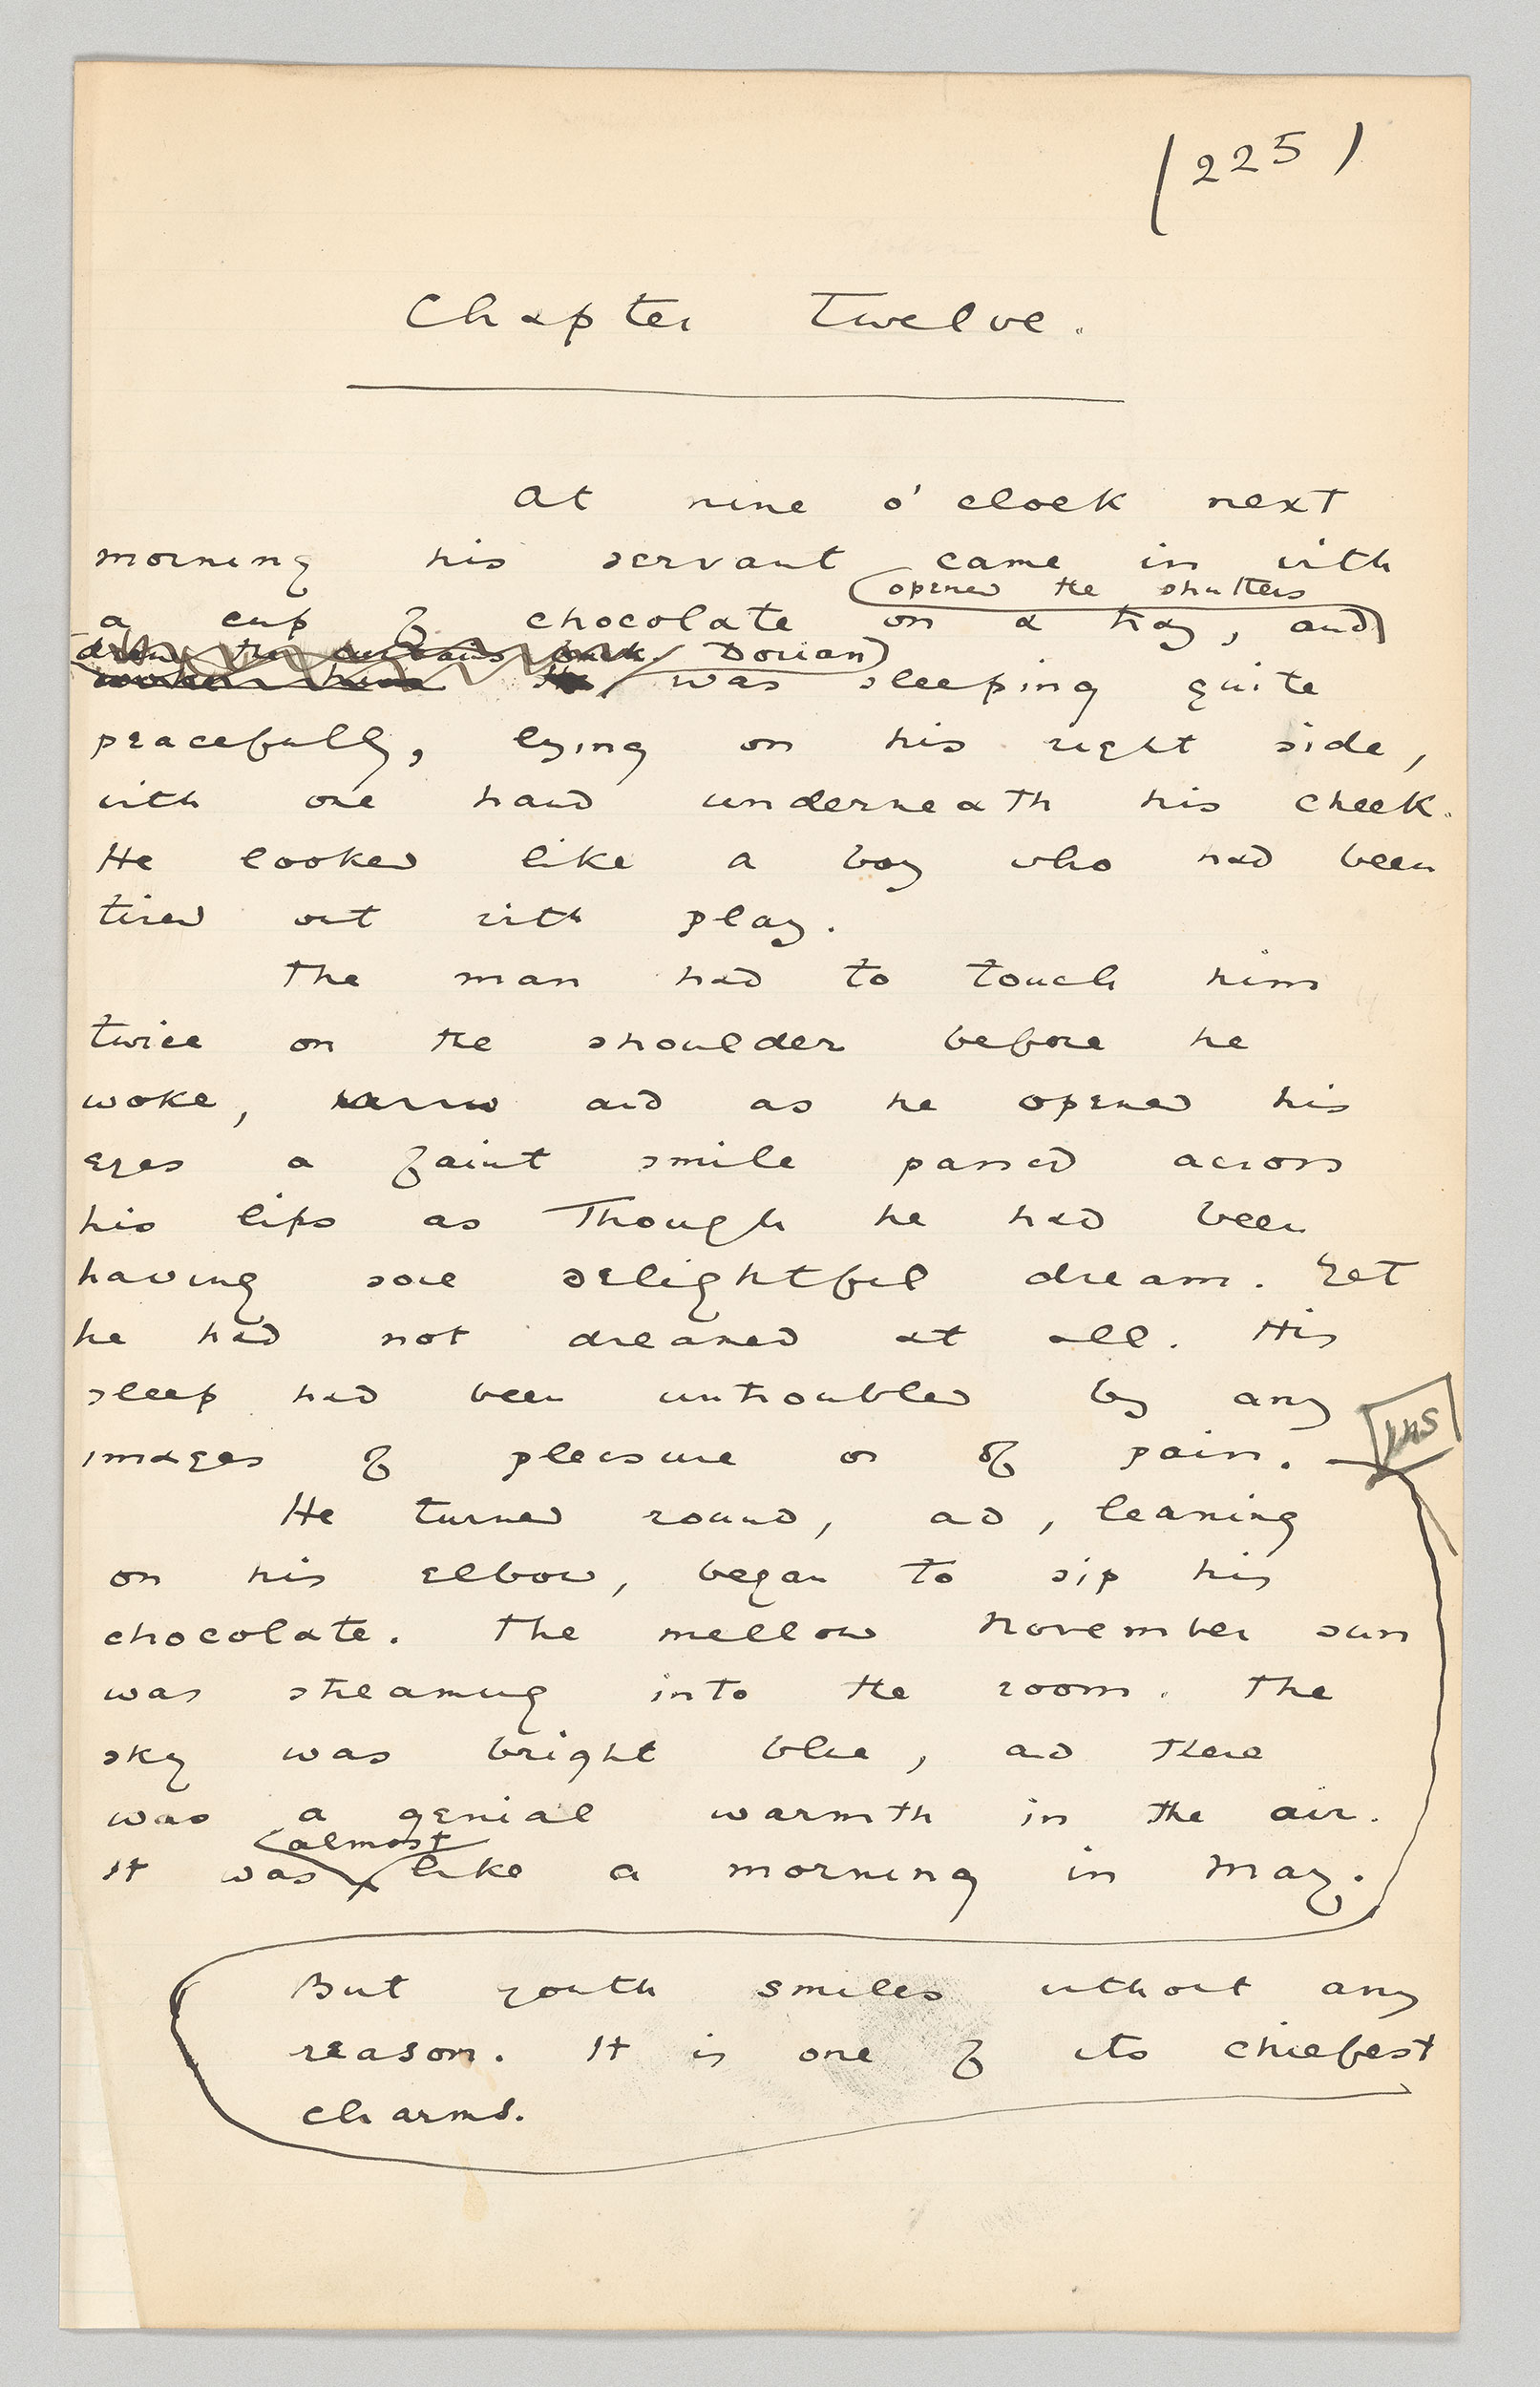 (225)
Chapter Twelve.
At nine o'clock next
morning his servant came in with
opened the shutters
a cup of chocolate on a tray, and
drew the curtains back. Dorian
woke him He was sleeping quite
peacefully, lying on his right side,
with one hand underneath his cheek.
He looked like a boy who had been
tired out with play.
The man had to touch him
twice on the shoulder before he
woke, and as he opened his
eyes a faint smile passed across
his lips as though he had been
having some delightful dream. Yet
he had not dreamed at all. His
sleep had been untroubled by any
images of pleasure or of pain.
INS
He turned round, and, leaning
on his elbow, began to sip his
chocolate. The mellow November sun
was streaming into the room. The
sky was bright blue, and there
was a genial warmth in the air.
almost
It was like a morning in May.
But youth smiles without any
reason. It is one of its chiefest
charms.